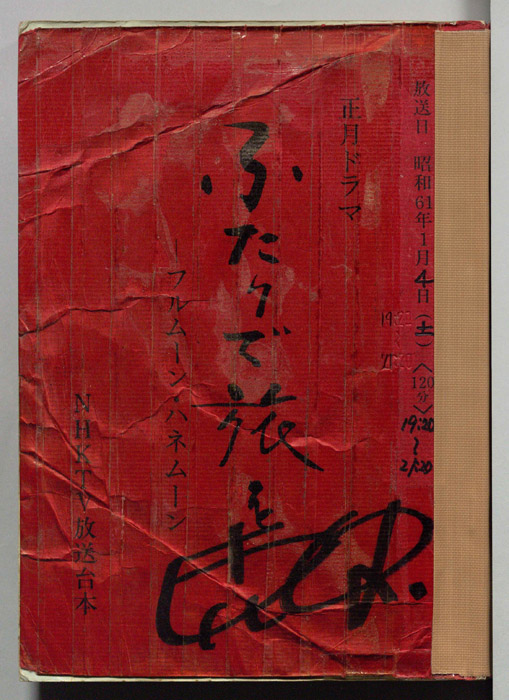 放送日 昭和61年1月4日(土)〈120分〉
19:20
〜
21:20
正月ドラマ
ふたりで旅を
―フルムーン・ハネムーン
NHKTV放送台本